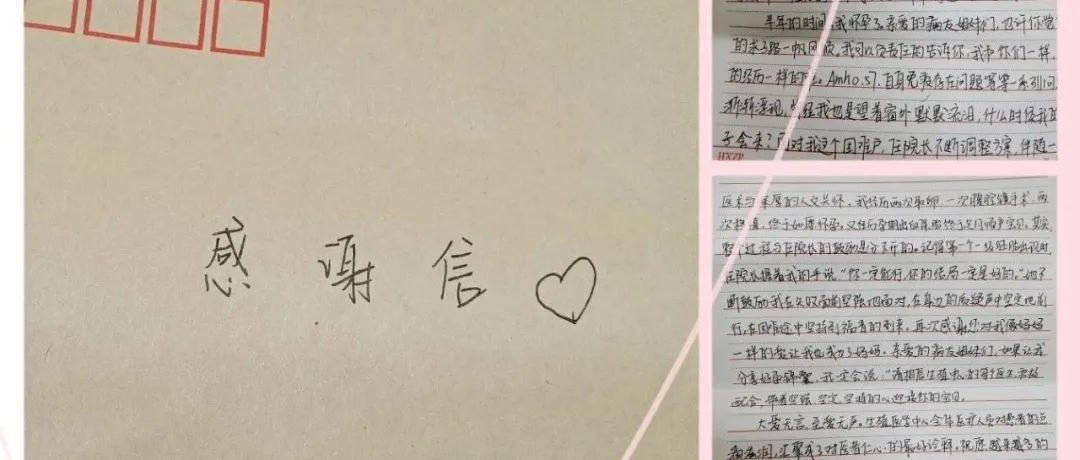 感谢信
半年的时间,我怀孕了,亲爱的病友姐妹们,也许你觉
的求子路一帆风顺,我可以负责任的告诉你,我和你们一样,
的经历一样的 Amh0.57,自身免疫存在问题等等一系列问
渐渐浮现,曾经我也是望着窗外默默流泪,什么时候我的
子会来?面对我这个困难户,任院长不断调整方案,伴随一
HXZP
医术与深厚的人文关怀,我经历两次取卵,一次腹腔镜手术,两
次移植,终于如愿怀孕,又经历孕期出血 终于足月顺产宝贝,其实
整个过程与任院长的鼓励是分不开的,记得第一个 出现时
任院长握着我的手说“你一定能行,你的结局一定是好的,”她不
断鼓励我在失败面前坚强地面对,在身边的质疑声中坚定地前
行,在困难途中坚持到福音的到来,再次感谢您对我像妈妈
一样的爱让我也成为了妈妈,亲爱的病友姐妹们,如果让我
分享好孕锦囊,我一定会说:“请相信生殖中心的每个医生,积极
配合,带着坚强,坚定,坚持的心迎接你的宝贝,
大爱无言,至爱无声,生殖医学中心全体医护人员对患者的点
滴滋润,汇聚成了对医者仁心的最好诠释,祝愿越来越多的